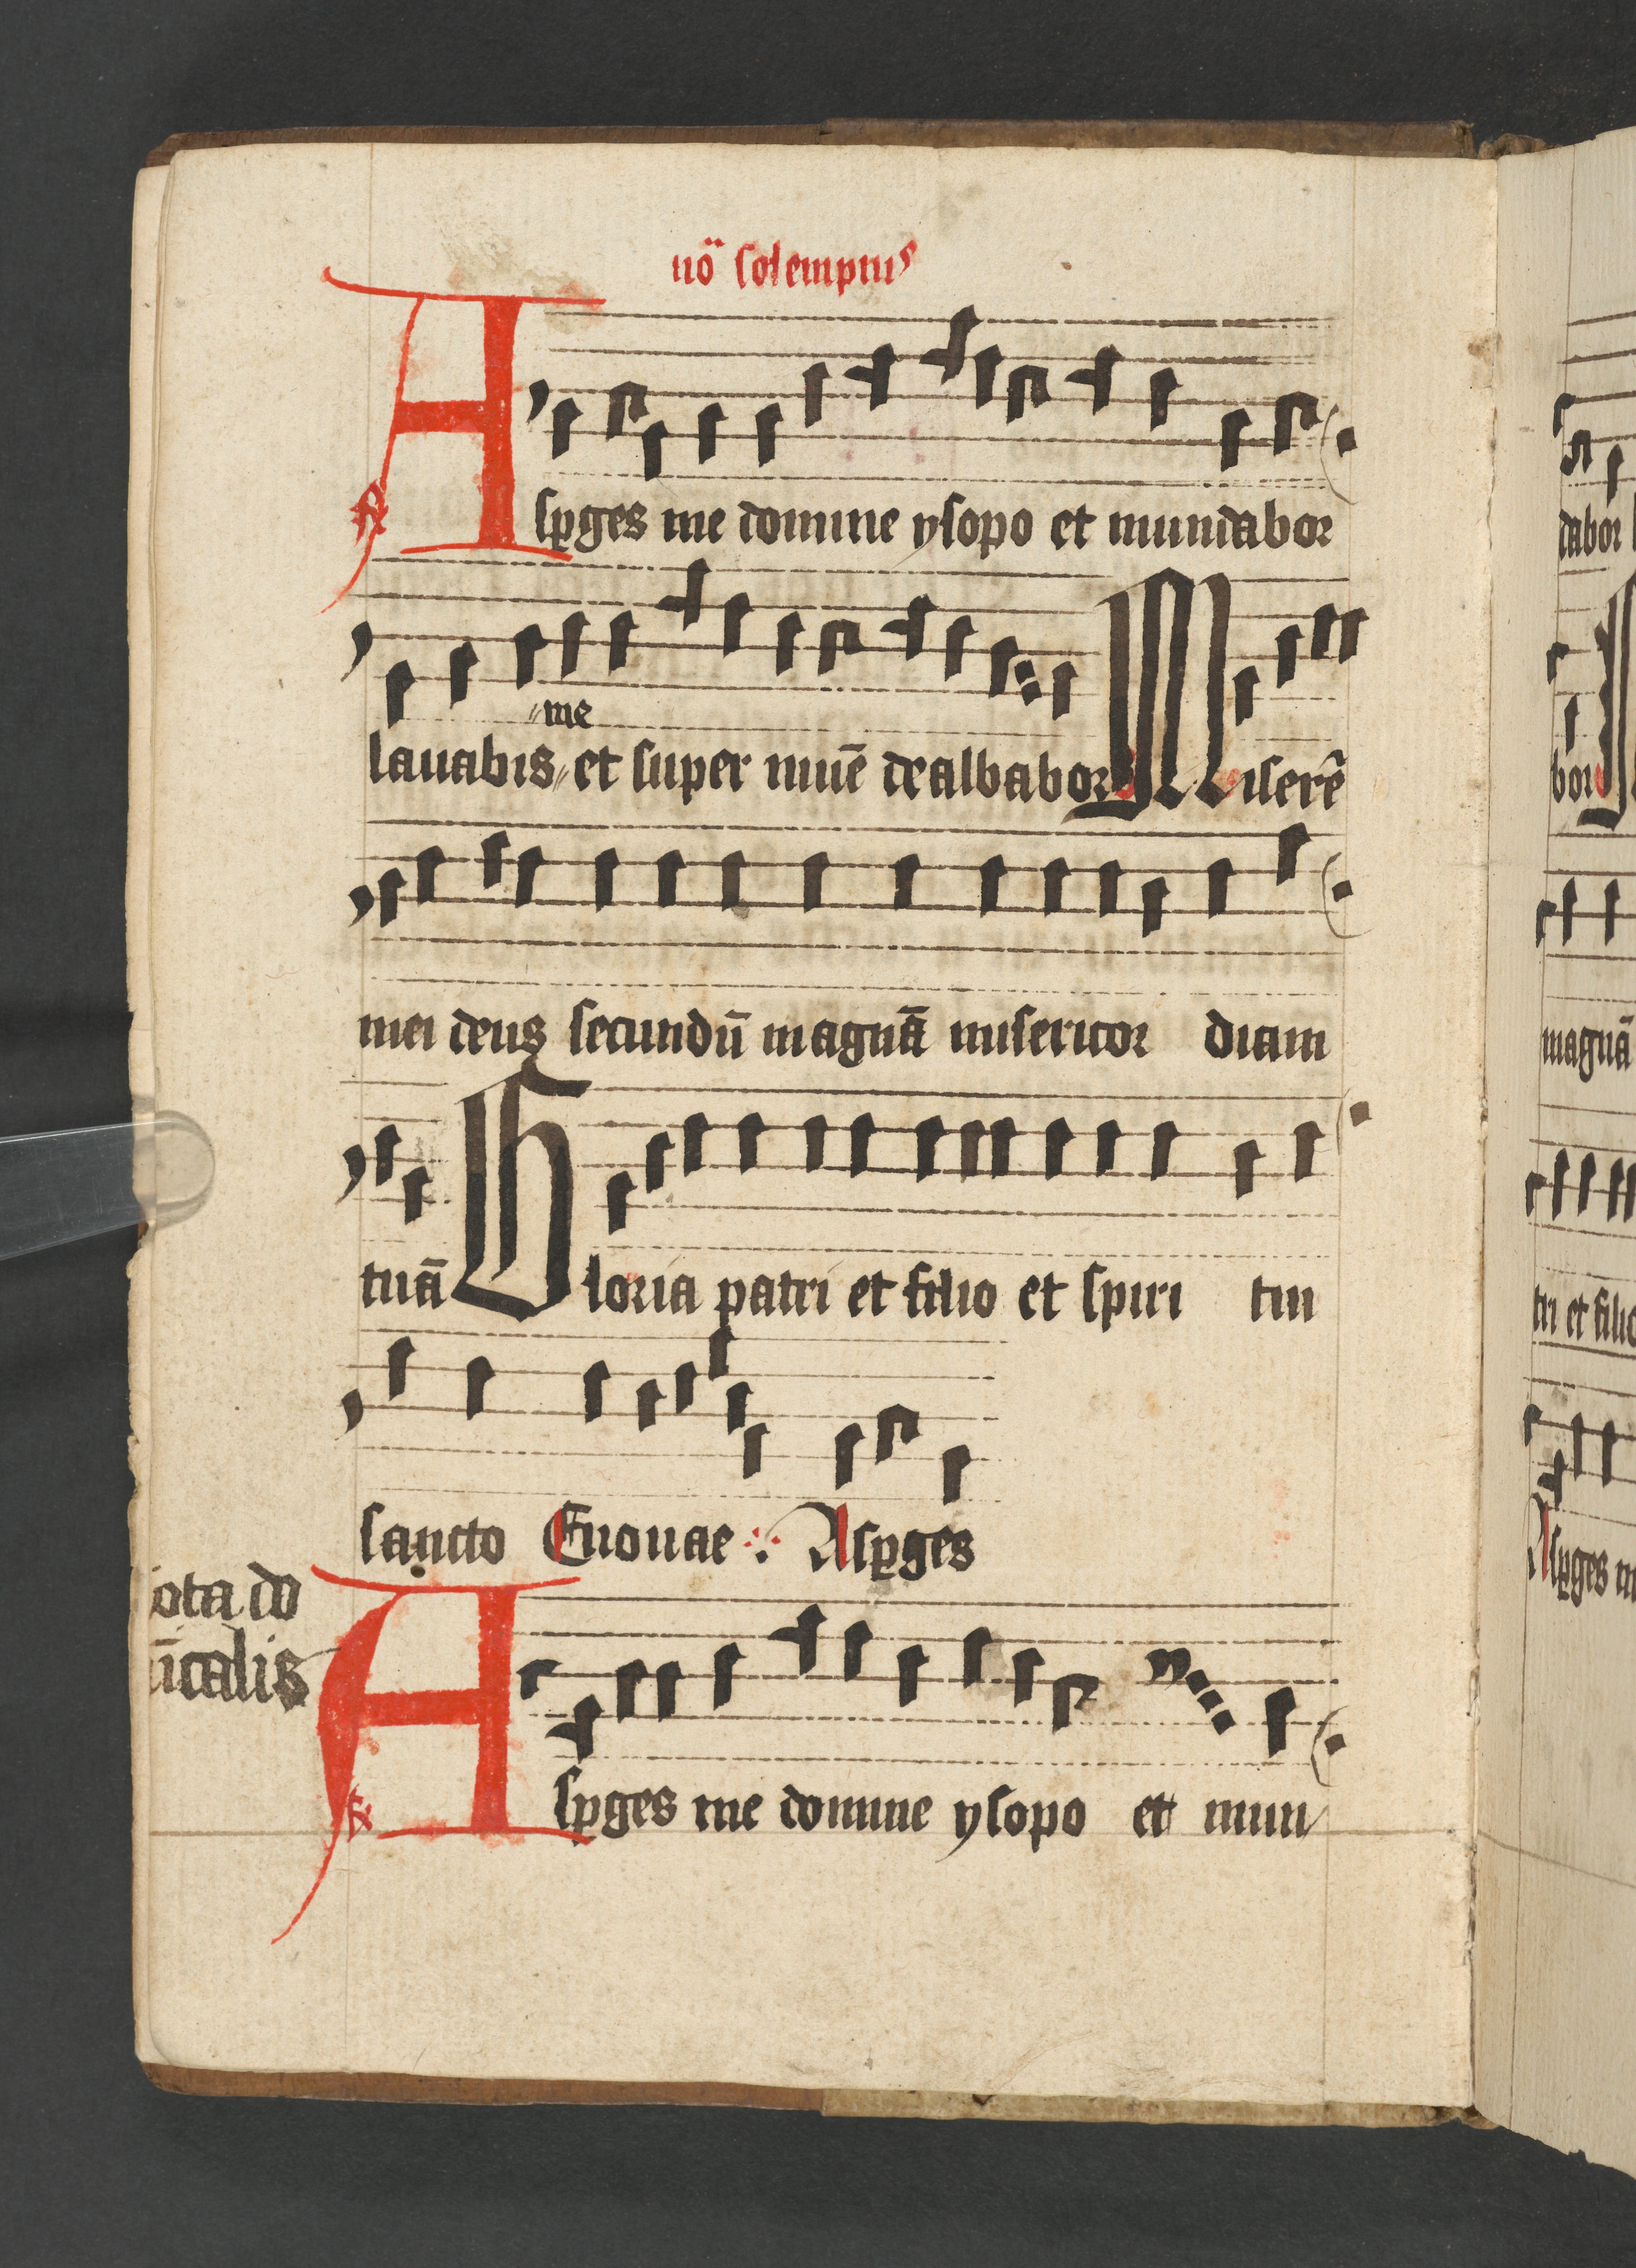 nö solempnis
Asꝑges me domine ysopo et mundabor
me
lauabis⸗ et super niuē dealbabor Miserē
mei deus secundū magnā misericor diam
tuā Gloria patri et filio et spiri tui
sancto Euouae Asꝑges
ota do
īcalis
Asꝑges me domine ysopo et mun
dabor
bor
magnā
tri et filio
Asꝑges m